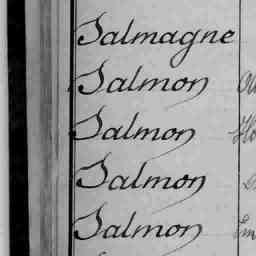 Salmagne
Salmon
Salmon
Salmon
Salmon